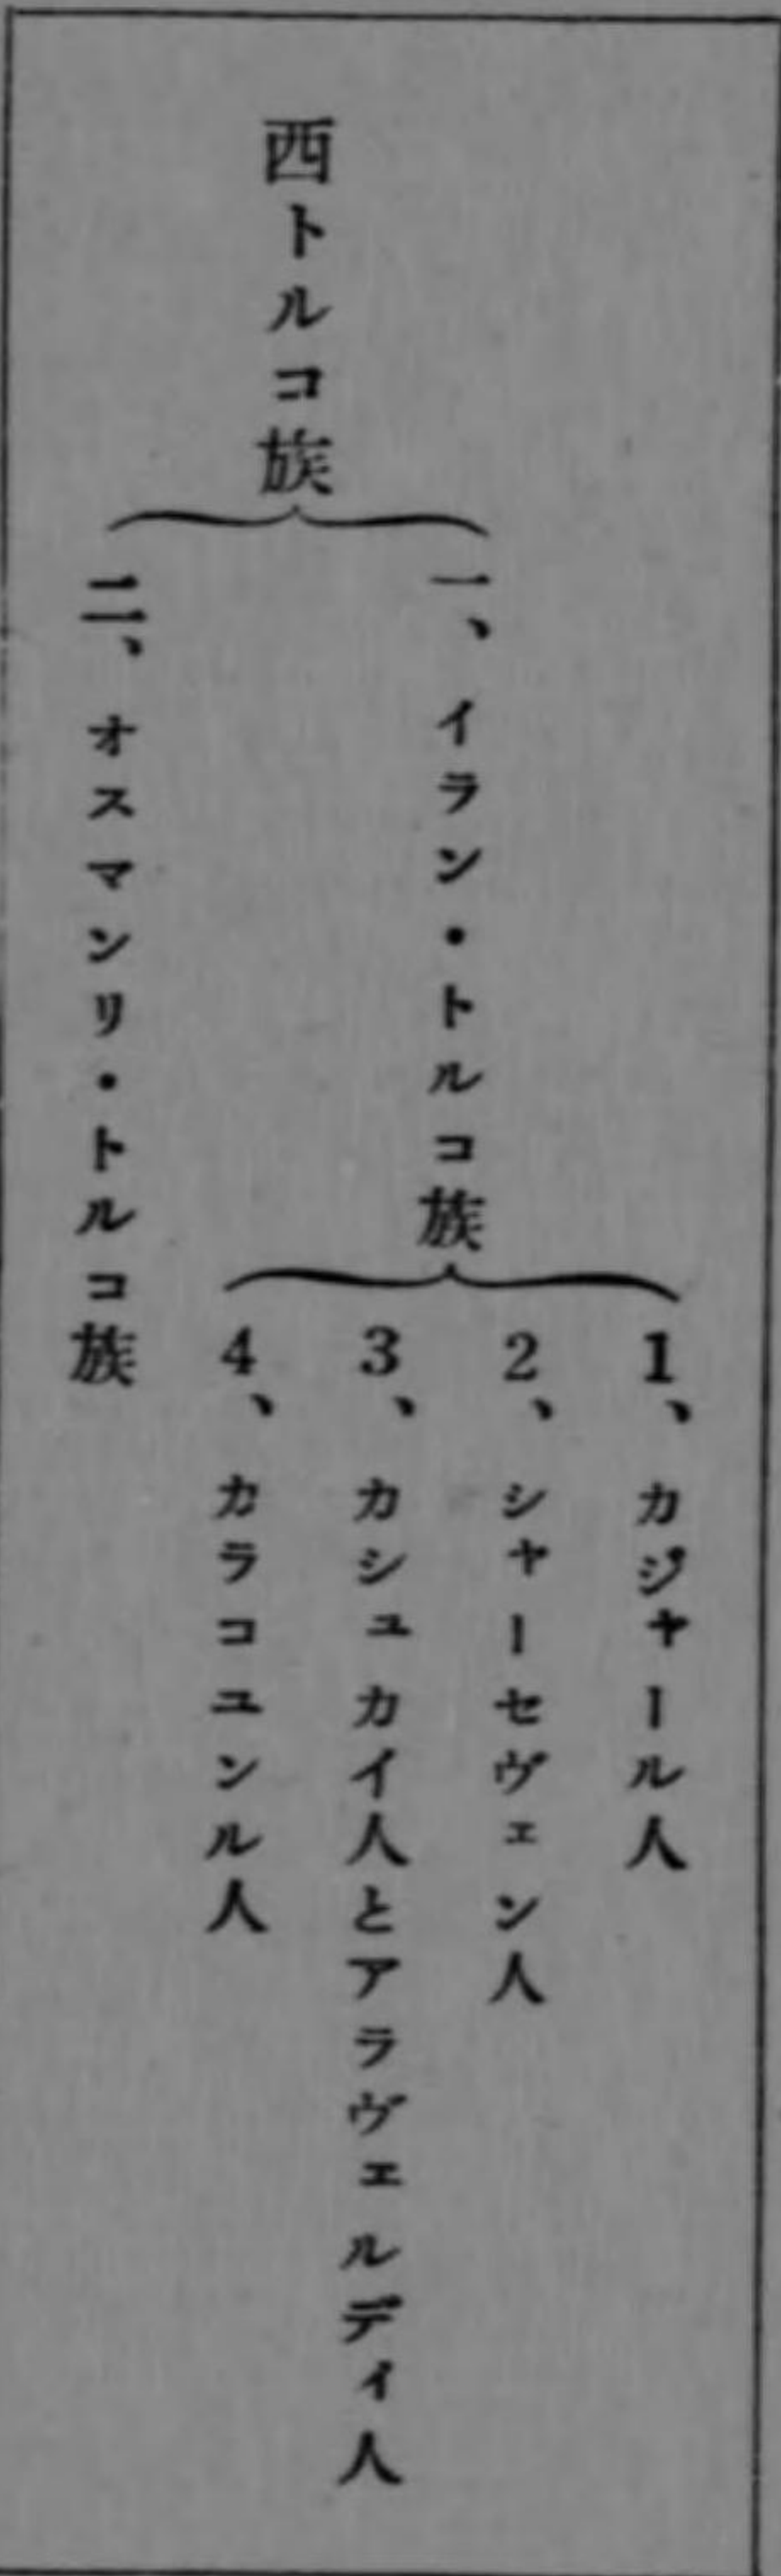 西トルコ族
一、イラン・トルコ族
1、カジャール人
2、シャーセヴェン人
3、カシュカイ人とアラヴェルディ人
4、カラコユンル人
二、オスマンリ・トルコ族